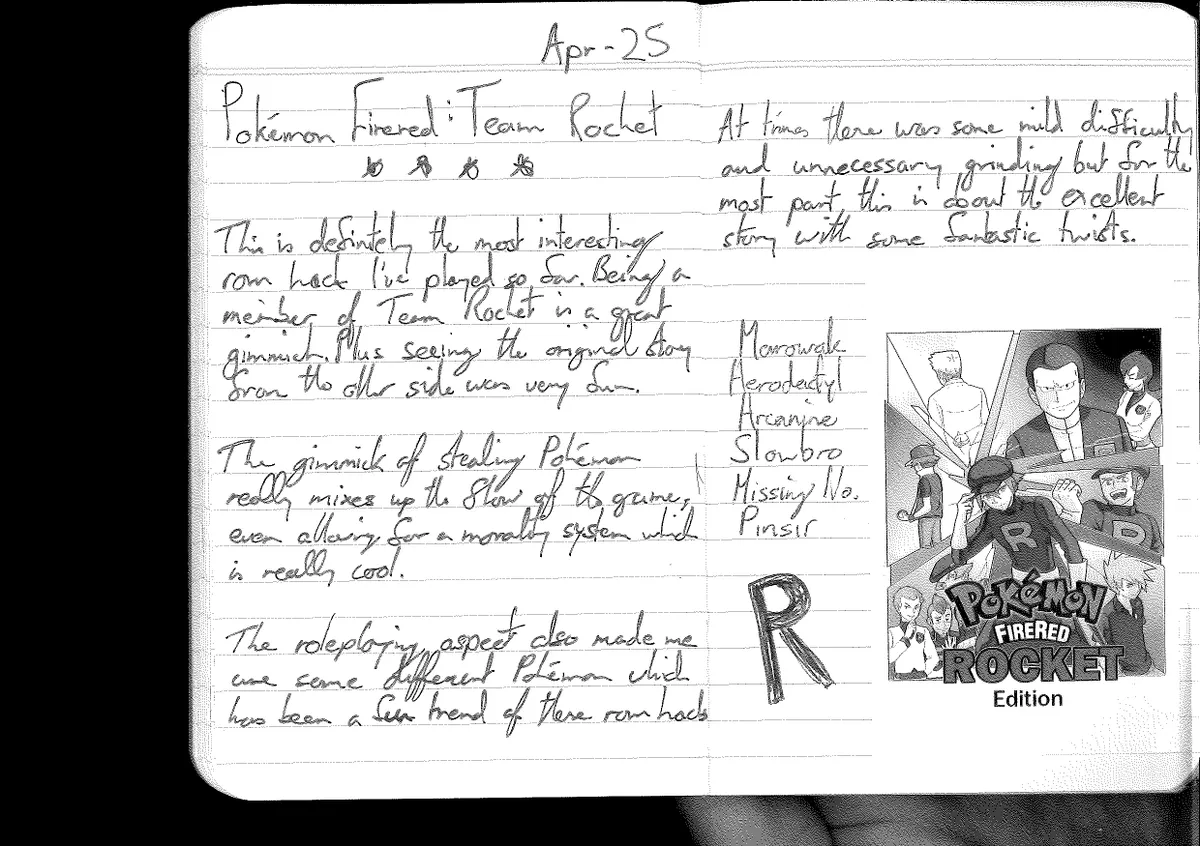 Apr-25
Pokémon Firered: Team Rocket
This is definitely the most interesting
rom hack I've played so far. Being a
member of Team Rocket is a great
gimmick. Plus seeing the original story
from the other side was very fun.
The gimmick of stealing Pokémon
really mixes up the flow of the game,
even allowing for a morality system which
is really cool.
The roleplaying aspect also made me
use some different Pokémon which
has been a fun trend of these rom hacks
At times there was some mild difficulty
and unnecessary grinding but for the
most part, this is about the excellent
story with some fantastic twists.
Marowak
Aerodactyl
Arcanine
Slowbro
Missing No.
Pinsir
R
R
R
POKéMON
FIRERED
ROCKET
Edition